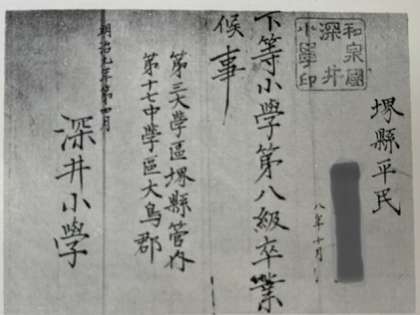 和泉國
深井
小學印
堺縣平民
八年十月
下等小學第八級卒業
候事
第三大學區堺縣管内
第十七中學區大鳥郡
深井小學